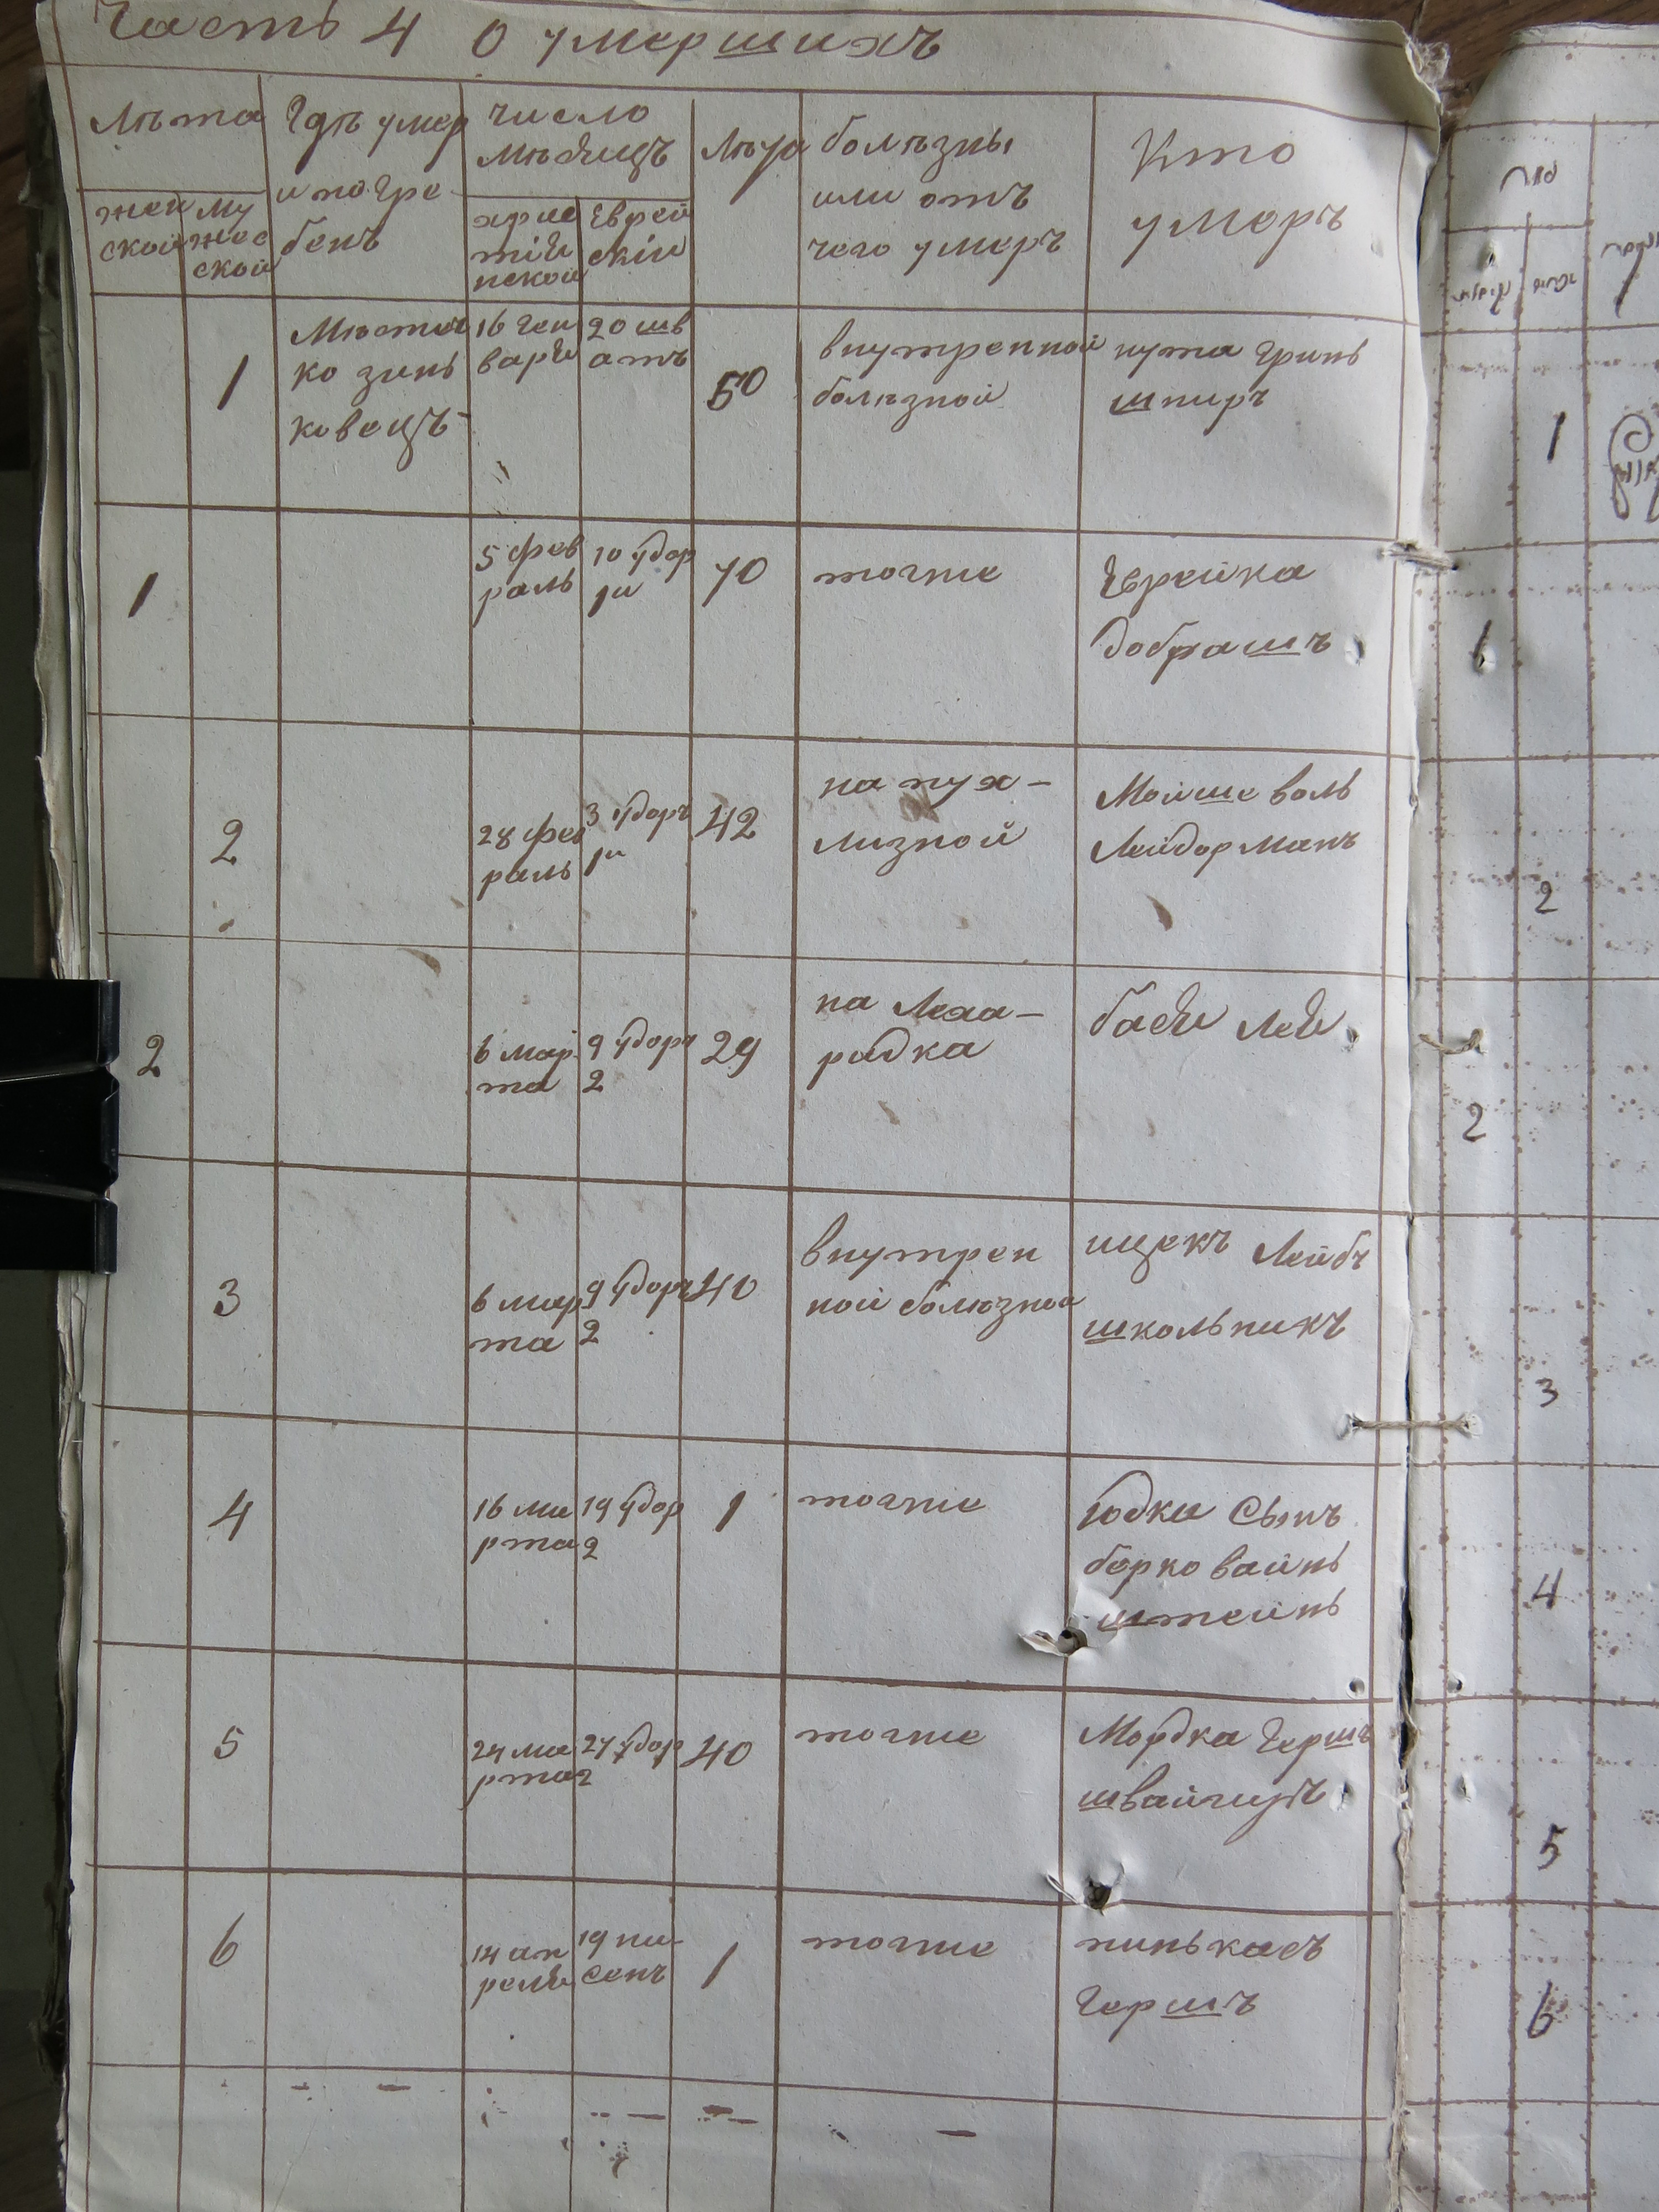 Часть 4 О умершихъ
Лѣта
женской
мужеской
Гдѣ умер
и погре
бенъ
число
мѣсяцъ
христіянской
Еврей
скіи
Лѣта
болѣзны
или отъ
чего умеръ
Кто
умеръ
1
Мѣстеч
ко зинь
ковецъ
16 Ген
варя
20 шв
атъ
50
внутренной
болѣзной
нута Гринь
шпиръ
1
5 фев
раль
10 удор
1й
70
тогже
Еврейка
добрашъ
2
28 фев
раль
3 удоръ
1й
42
на пух-
лизной
Мойше воль
Лейдорманъ
2
6 мар
та
9 удоръ
2
29
на леха-
радка
бася лея
3
6 мар
та
9 удоръ
2
40
внутрен
ной болюзной
ицекъ Лейбъ
школьникъ
4
16 ма
рта
19 удор
2
1
тогже
Юдка сынъ
борко вайнь
штейнь
5
24 ма
рта
27 удор
2
40
тогже
Мордка Гершъ
швайгуръ
6
14 ап
реля
19 ни
сенъ
1
тогже
пинькасъ
Гершъ
1
1
2
2
3
4
5
6